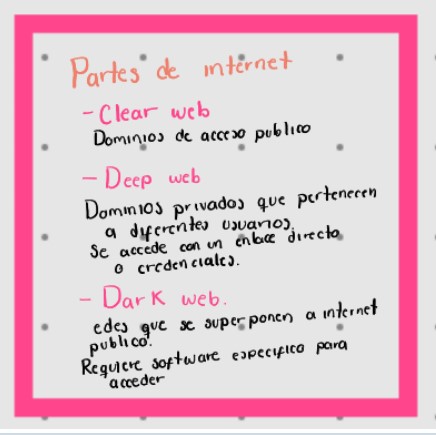 Partes de internet
- Clear web
Dominios de acceso publico
- Deep web
Dominios privados que pertenecen
a diferentes usuarios.
Se accede con un enlace directo
o credenciales.
- Dark web.
edes que se superponen a internet
publico.
Requiere software especifico para
acceder